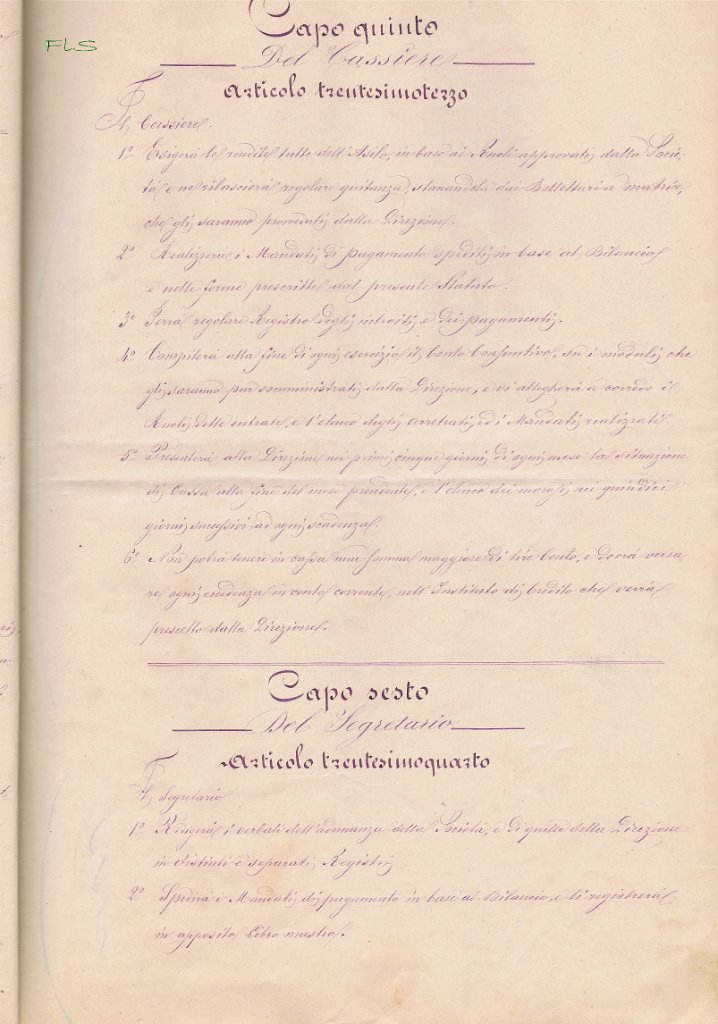 FLS
Capo quinto
Del Cassiere
Articolo trentesimoterzo
Il Cassiere.
1º Esigerà le rendite tutte dell'Asilo, in base ai Ruoli approvati dalla Socie-
tà, e ne rilascierà regolare quitanza, staccandola dai Bollettari a matrice,
che gli saranno provveduti dalla Direzione.
2º Realizzerà i Mandati di pagamento spediti in base al Bilancio
e nelle forme prescritte dal presente Statuto.
3º Terrà regolare Registro degli introiti e dei pagamenti.
4º Compilerà alla fine di ogni esercizio il Conto Consuntivo, su i moduli che
gli saranno pur somministrati dalla Direzione, e vi allegherà a corredo i
Ruoli delle entrate, e l'elenco degli arretrati, ed i Mandati realizzati.
5º Presenterà alla Direzione nei primi cinque giorni di ogni mese la situazione
di Cassa alla fine del mese precedente, e l'elenco dei morosi nei quindici
giorni successivi ad ogni scadenza.
6º Non potrà tenere in cassa una somma maggiore di lire Cento, e dovrà versa-
re ogni eccedenza in conto corrente, nell'Instituto di Credito che verrà
prescelto dalla Direzione.
Capo sesto
Del Segretario
Articolo trentesimoquarto
Il Segretario
1º Redigerà i verbali dell'adunanza della Società, e di quelle della Direzione
in distinti e separati Registri
2º Spedirà i Mandati di pagamento in base al Bilancio, e li registrerà
in apposito libro mastro.